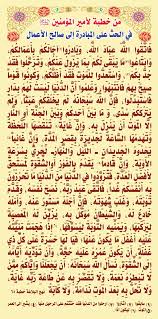 من خطبة لأمير المؤمنين
في الحث على المبادرة إلى صالح الأعمال
فاتقوا الله عباد الله، وبادروا آجالكم بأعمالكم،
وابتاعوا ما يبقى لكم بما يزول عنكم، وترحلوا فقد
جد بكم، واستعدوا للموت فقد أظلكم، وكونوا قوما
صيح بهم فانتبهوا، وعلموا أن الدنيا ليست لهم بدار
فاستبدلوا، فإن الله سبحانه لم يخلقكم عبثا، ولم
يترككم سدى، وما بين أحدكم وبين الجنة أو النار
إلا الموت أن ينزل به. وإن غاية تنقصها اللحظة
وتهدمها الساعة لجديرة بقصر المدة، وإن غائبا
يحدوه الجديدان: الليل والنهار، لحري بسرعة
الأوبة، وإن قادما يقدم بالفوز أو الشقوة لمستحق
لأفضل العدة، فتزودوا في الدنيا من الدنيا ما تحرزون
به أنفسكم غدا، فاتقى عبد ربه، نصح نفسه، وقدم
توبته، وغلب شهوته، فإن أجله مستور عنه، وأمله
خادع له، والشيطان موكل به، يزين له المعصية
ليركبها، ويمنيه التوبة ليسوفها، إذا هجمت منيته
عليه أغفل ما يكون عنها، فيا لها حسرة على كل ذي
غفلة أن يكون عمره عليه حجة، وأن تؤديه أيامه
إلى الشقوة، نسأل الله سبحانه أن يجعلنا وإياكم ممن
لا تبطره نعمة، ولا تقصر به عن طاعة ربه غاية،
ولا تحل به بعد الموت ندامة ولا كآبة